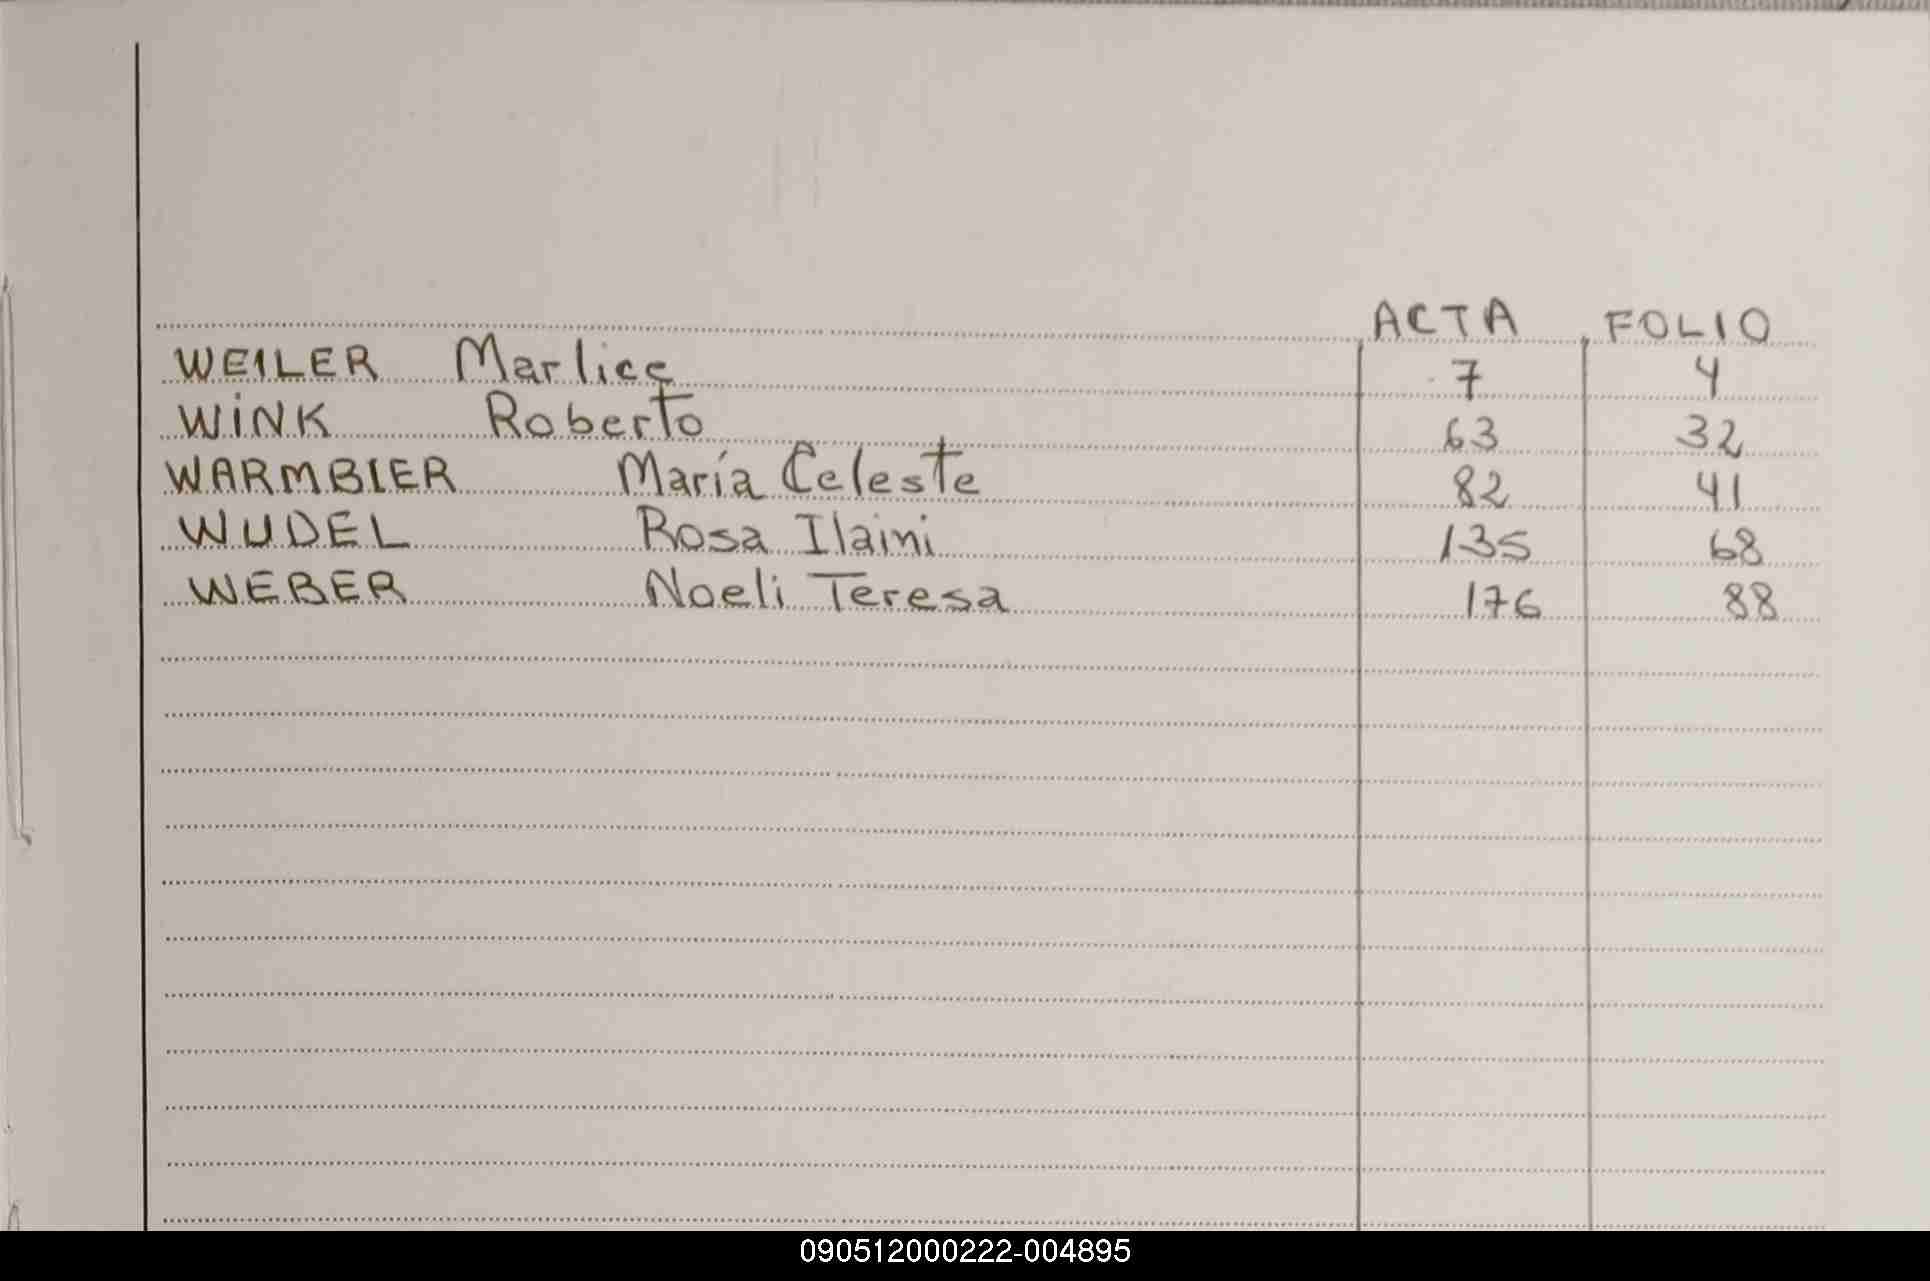 ACTA FOLIO
WEILER Marlice 7 4
WINK Roberto 63 32
WARMBIER María Celeste 82 41
WUDEL Rosa Ilaini 135 68
WEBER Noeli Teresa 176 88
090512000222-004895